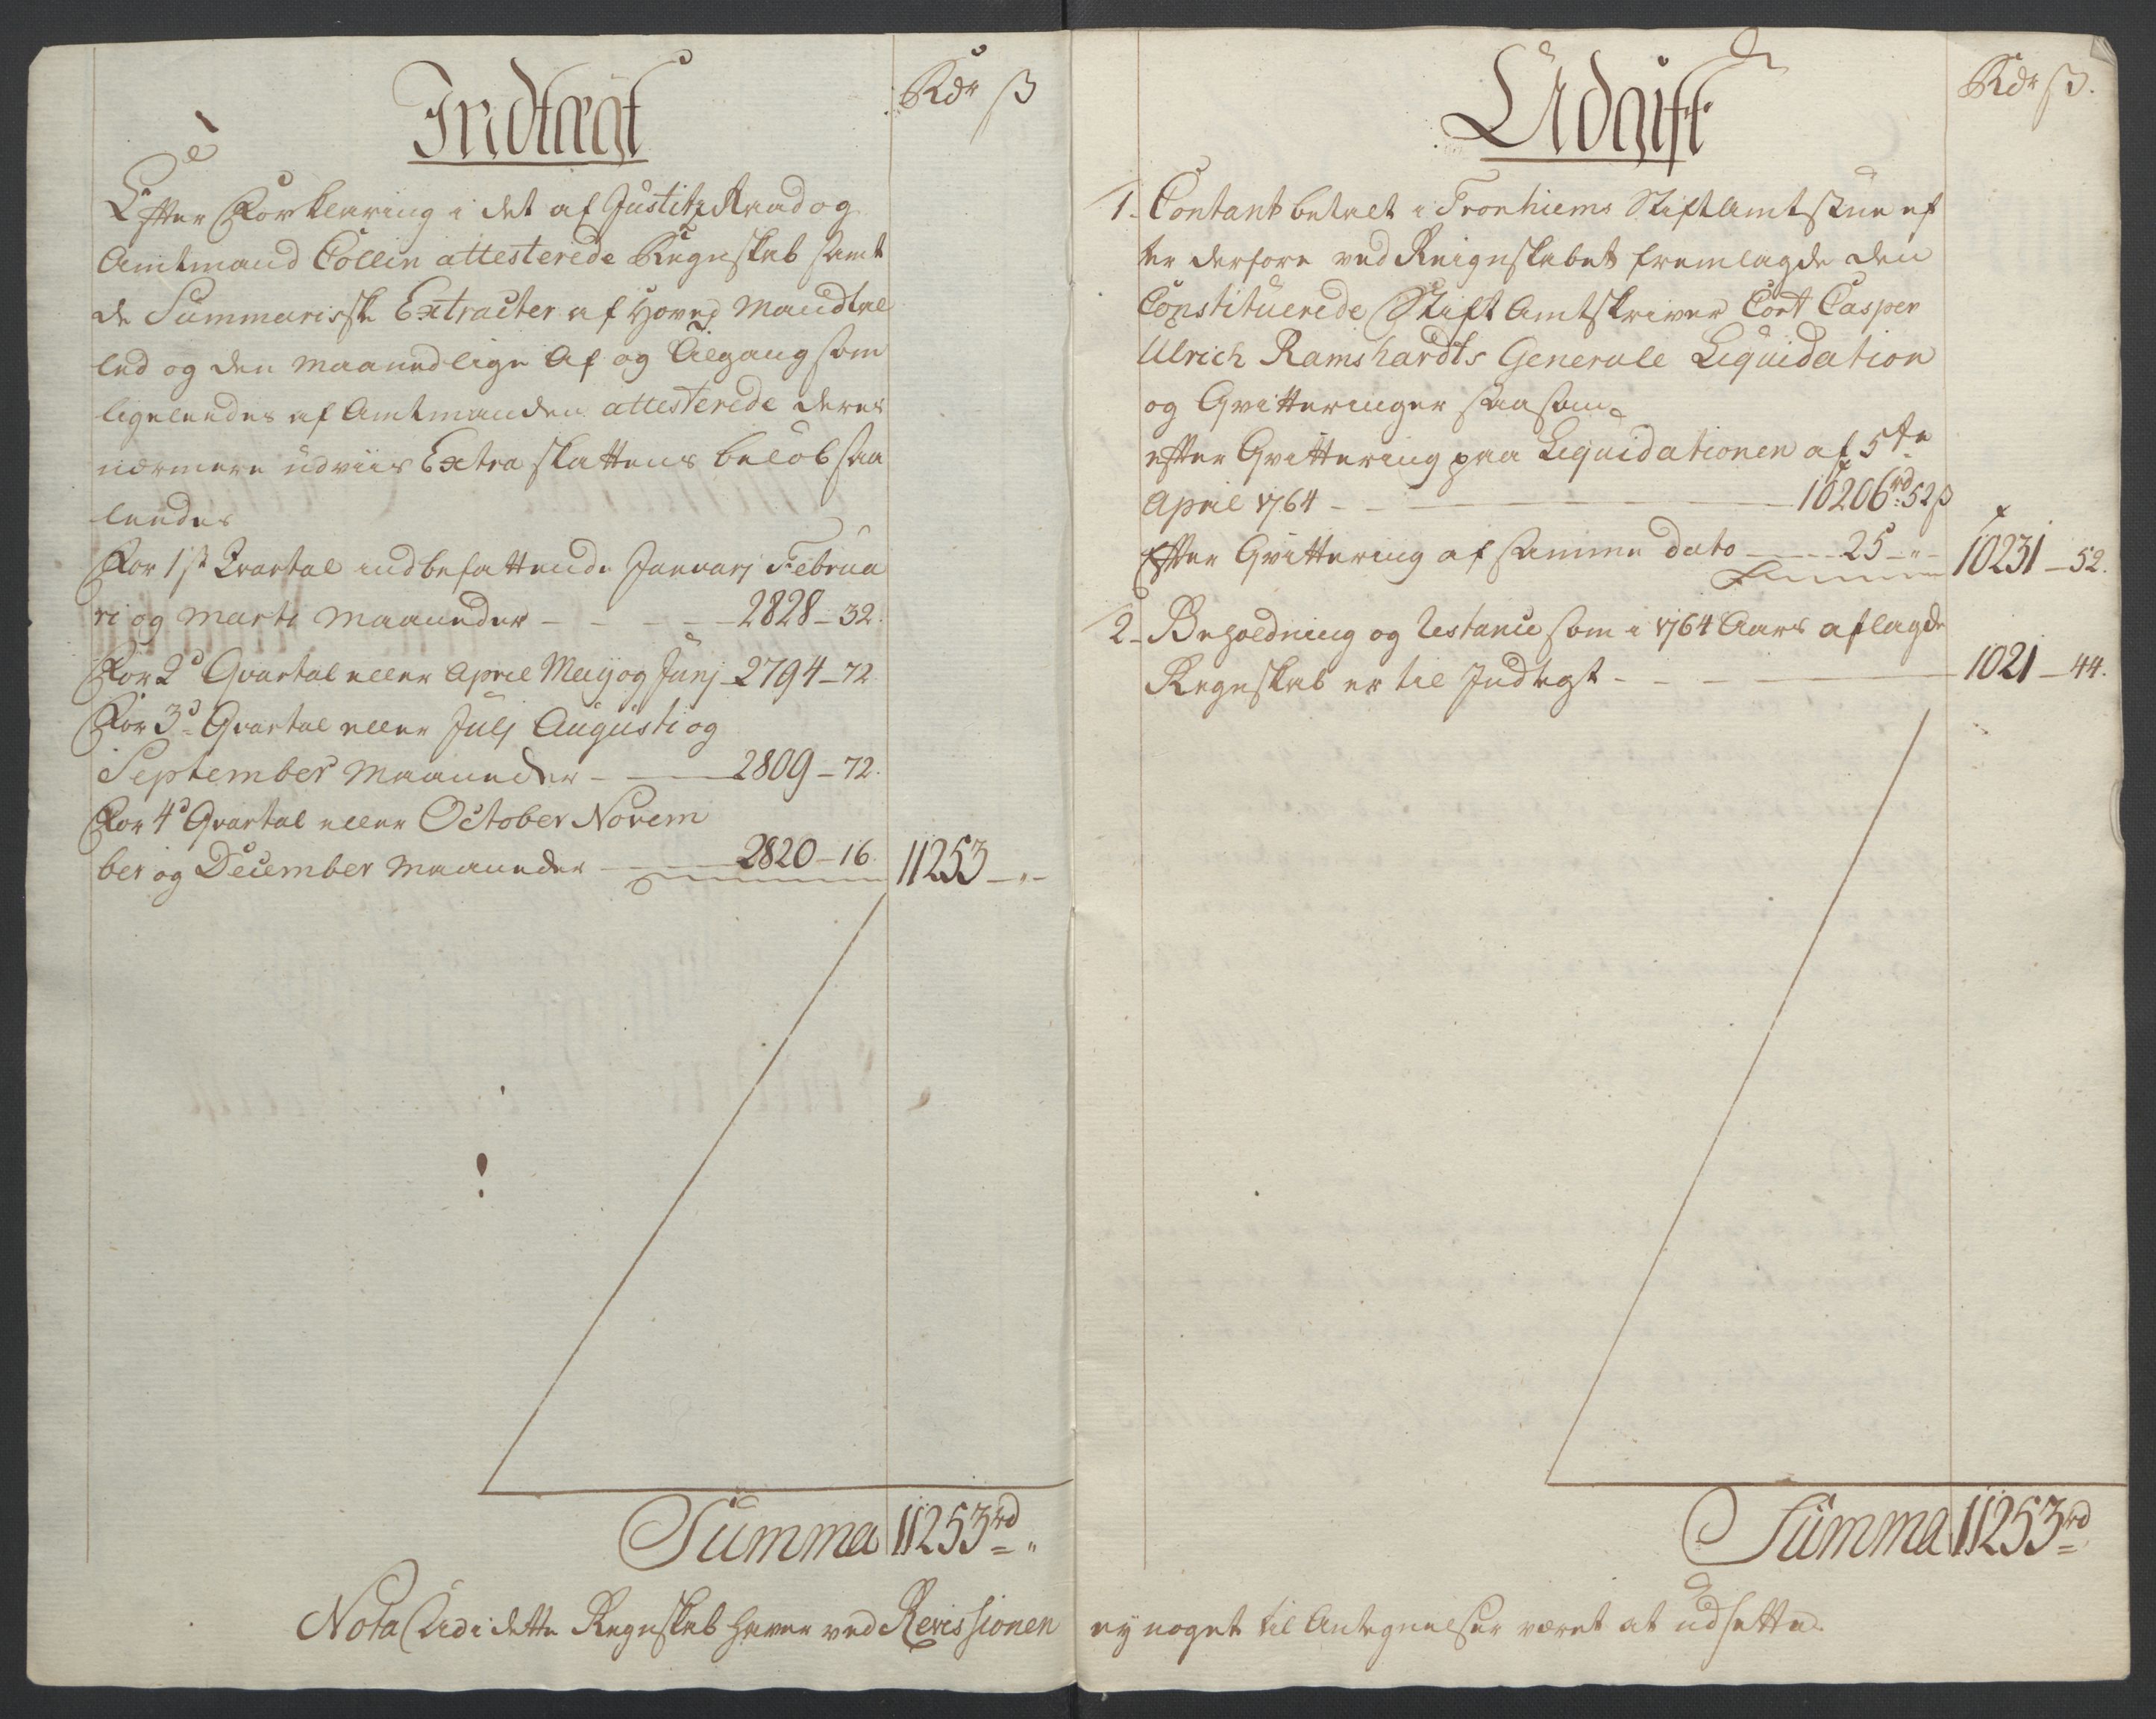 Indtægt
Rdr ß
Efter Forklaring i det af Justitz Raad og
Amtmand Collin attesterede Regnskab samt
de Summariske Extracter af Hoved Mandtal
led og den Maanedlige Af og Tilgang som
ligeledes af Amtmanden attesterede deres
nærmere udviis Extra Skattens beløb saa
ledes
For 1st Qvartal indbefattende Januarj Februa
ri og Marti Maaneder - - - 2828 - 32.
For 2d Qvartal eller April Maij og Junj - 2794 - 72
For 3d Qvartal eller Julj Augusti og
September Maaneder - - 2809 - 72.
For 4d Qvartal eller October Novem
ber og December Maaneder - 2820 - 16. 11253 - " -
Summa 11253rd "
Nota Udi dette Regnskab haver ved Revissionen
Udgift
Rdr ß.
1. Contant betalt i Tronhiems Stiftamtstue ef
ter derfore ved Reignskabet fremlagde den
Constituerede Stift Amtskriver Cort Casper
Ulrich Ramshardts Generale Liquidation
og Qvitteringer saasom
efter Qvittering paa Liquidationen af 5te
April 1764 - - - 10206rd 52ß
Efter Qvittering af samme dato - 25 - " - 10231 - 52.
2. Beholdning og Restance som i 1764 Aars aflagde
Regnskab er til Indtegt - - - 1021 - 44.
Summa 11253rd
ey noget til Antegnelser været at udsette.